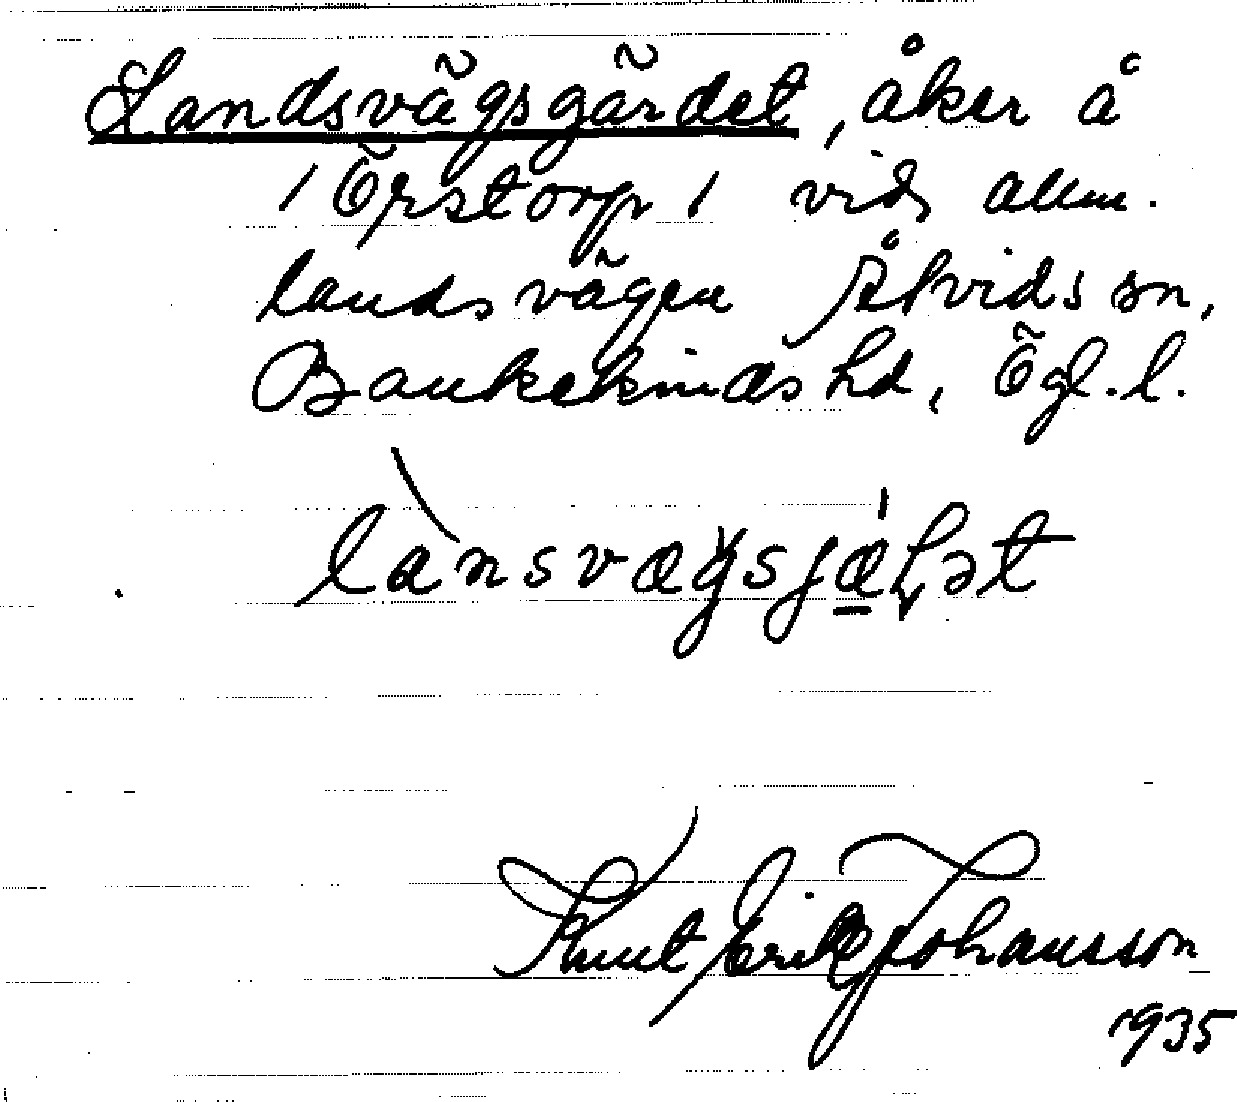 Landsvägsgärdet, åker å
/ Örstorp / vid allm.
landsvägen Åtvids sn,
Bankekinds hd, Ögl. l.
lànsvægsjæ̲ɭət
Knut Erik Johansson
1935